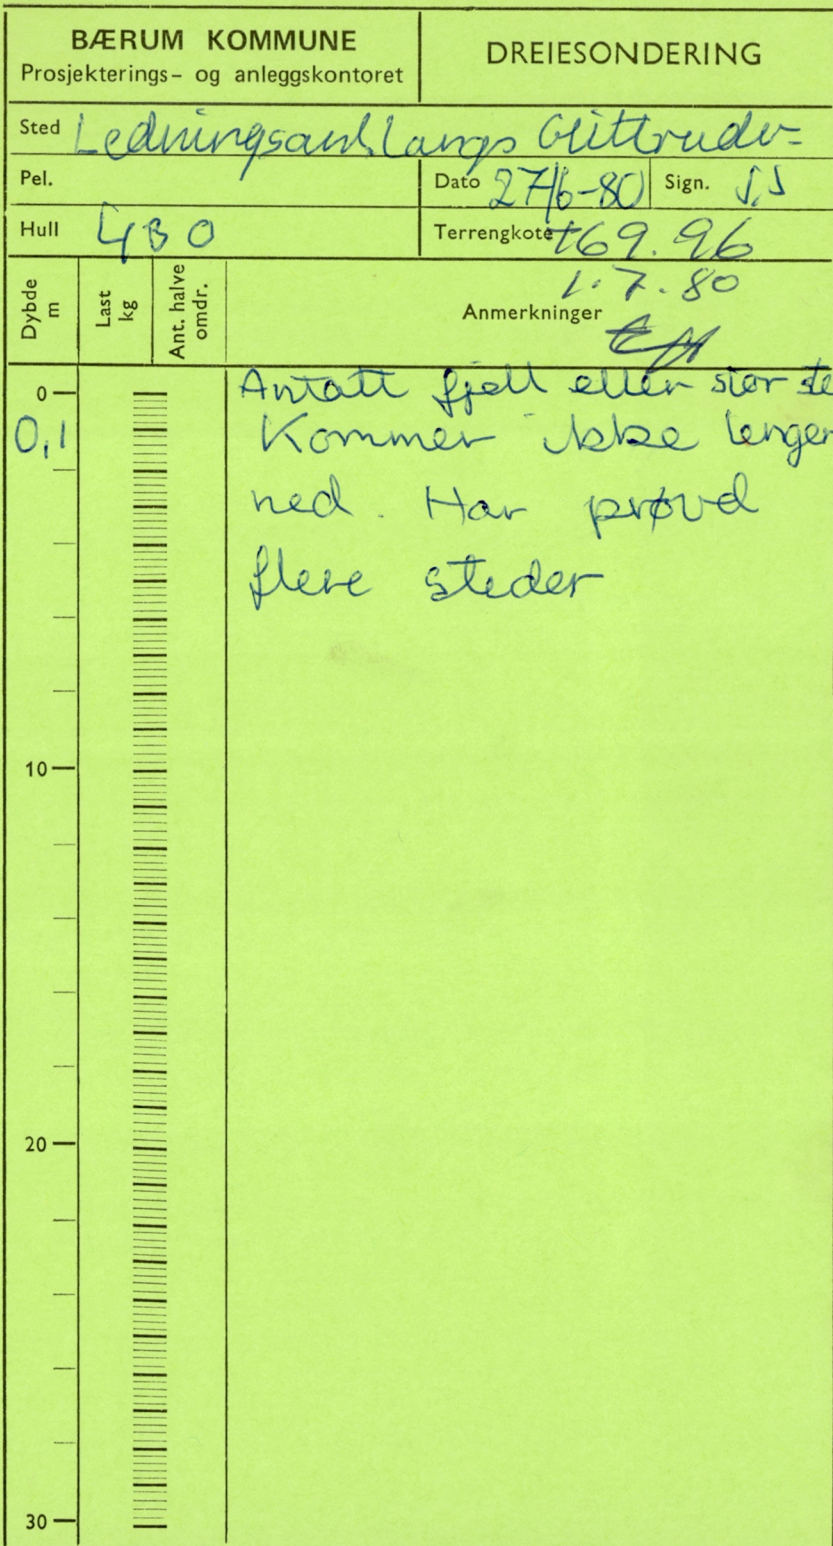 BÆRUM KOMMUNE
Prosjekterings- og anleggskontoret
DREIESONDERING
Sted Ledningsanl. langs
Pel.
Dato 27/6-80 Sign. S.S
Hull 430
Terrengkote +69.96
Dybde m
Last kg
Ant. halve omdr.
1.7.80
Anmerkninger
0
Antatt fjell eller stor ste
0,1
Kommer ikke lenger
ned. Har prøvd
flere steder
10
20
30